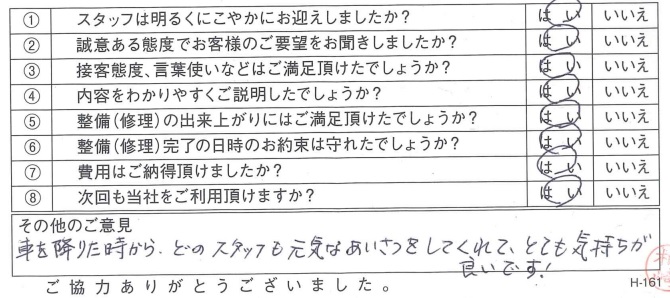 ① スタッフは明るくにこやかにお迎えしましたか? はい いいえ
② 誠意ある態度でお客様のご要望をお聞きしましたか? はい いいえ
③ 接客態度、言葉使いなどはご満足頂けたでしょうか? はい いいえ
④ 内容をわかりやすくご説明したでしょうか? はい いいえ
⑤ 整備(修理)の出来上がりにはご満足頂けたでしょうか? はい いいえ
⑥ 整備(修理)完了の日時のお約束は守れたでしょうか? はい いいえ
⑦ 費用はご納得頂けましたか? はい いいえ
⑧ 次回も当社をご利用頂けますか? はい いいえ
その他のご意見
車を降りた時から、どのスタッフも元気なあいさつをしてくれて、とても気持ちが
良いです!
ご協力ありがとうございました。
H-161